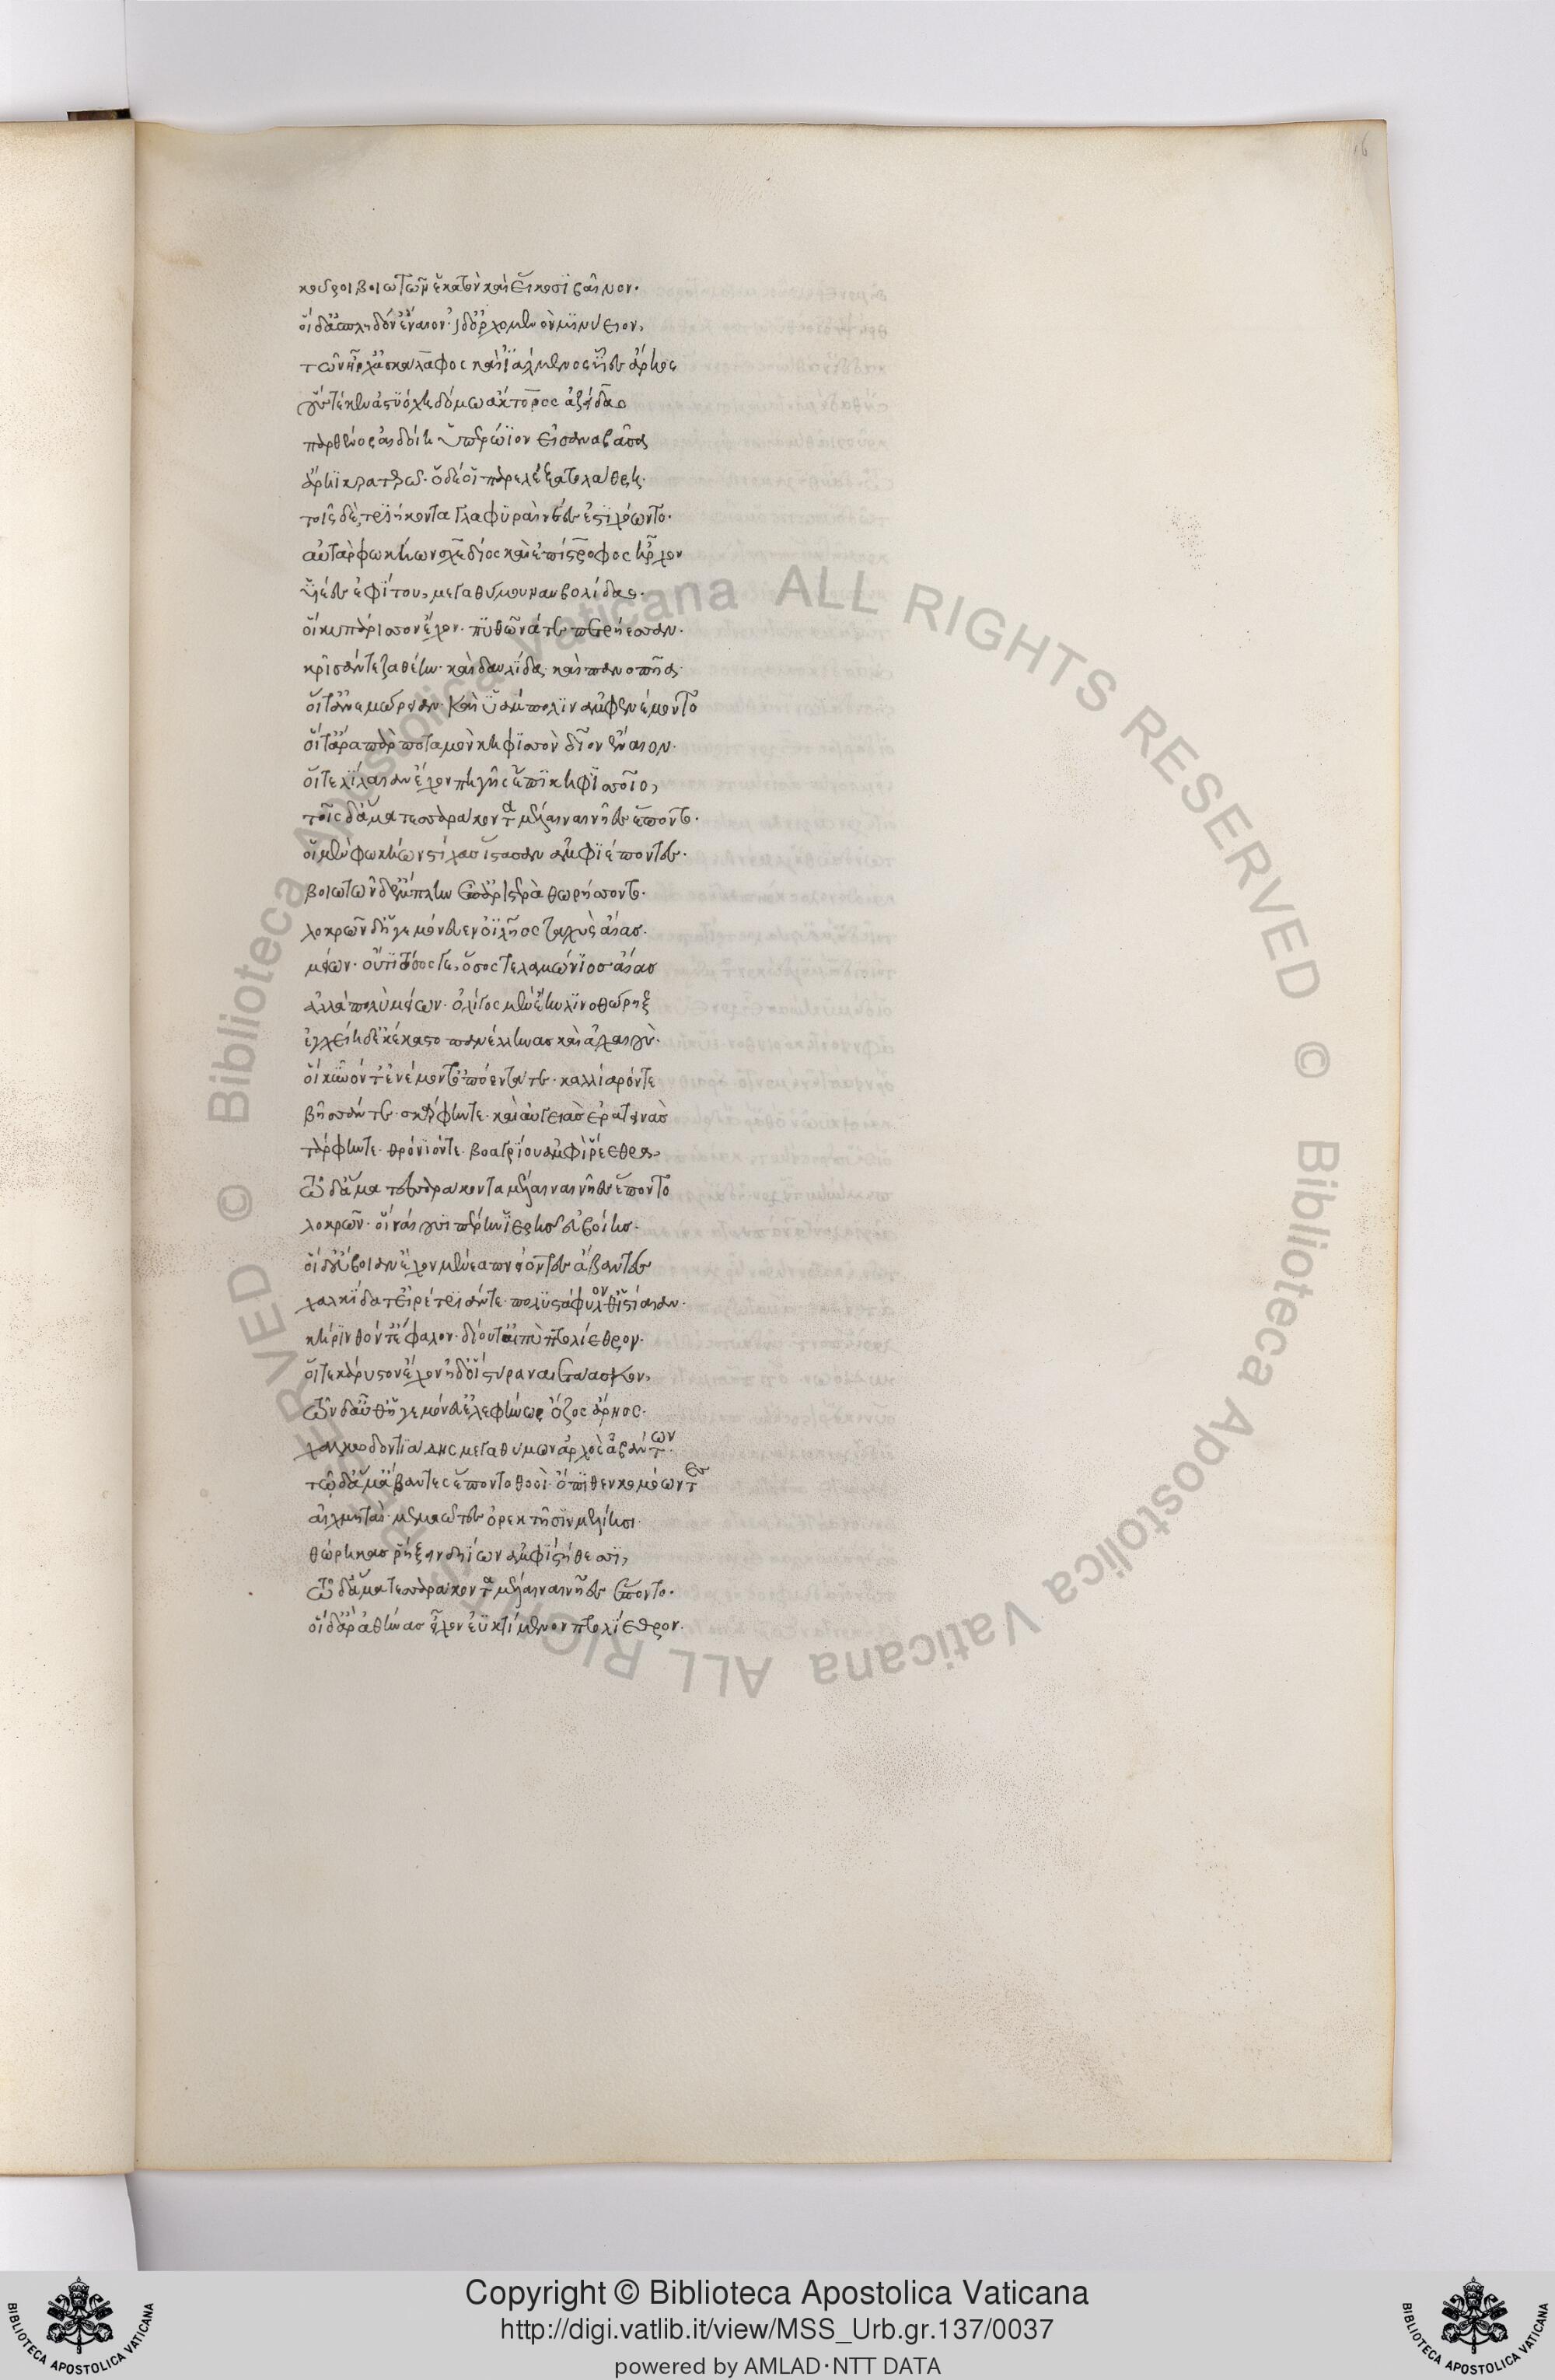 16
κοῦροι βοιωτῶν ἑκατὸν καὶ εἴκοσι βαῖνον.
οἳ δ' ἀσπληδόν' ἔναιον ἰδ' ὀρχομενὸν μινύειον,
τῶν ἦρχ' ἀσκάλαφος καὶ ἰάλμενος υἷες ἄρηος
οὓς τέκεν ἀστυόχη δόμῳ ἄκτορος ἀζείδαο
παρθένος αἰδοίη ὑπερώϊον εἰσαναβᾶσα
ἄρηϊ κρατερῷ. ὃ δέ οἱ παρελέξατο λάθρη.
τοῖς δὲ τριήκοντα γλαφυραὶ νέες ἐστιχόωντο.
αὐτὰρ φωκήων σχεδίος καὶ ἐπίστροφος ἦρχον
υἱέες ἰφίτου, μεγαθύμου ναυβολίδαο.
οἳ κυπάρισσον ἔχον. πυθῶνά τε πετρήεσσαν.
κρῖσάν τε ζαθέην. καὶ δαυλίδα. καὶ πανοπῆα.
οἵ τ' ἀνεμώρειαν. καὶ ὑάμπολιν ἀμφενέμοντο
οἵ τ' ἄρα πὰρ ποταμὸν κηφισσὸν δῖον ἔναιον.
οἵ τε λίλαιαν ἔχον πηγῇς ἔπι κηφισσοῖο,
τοῖς δ' ἅμα τεσσαράκοντα μέλαιναι νῆες ἕποντο.
οἳ μὲν φωκήων στίχας ἵστασαν ἀμφιέποντες.
βοιωτῶν δ' ἔμπλην ἐπ' ἀριστερὰ θωρήσσοντο.
λοκρῶν δ' ἡγεμόνευεν ὀϊλῆος ταχὺς αἴας.
μείων. οὔτι τόσος γε, ὅσος τελαμώνιος αἴας
ἀλλὰ πολὺ μείων. ὀλίγος μὲν ἔην λινοθώρηξ
ἐγχείῃ δ' ἐκέκαστο πανέλληνας καὶ ἀχαιούς.
οἳ κῦνόν τ' ἐνέμοντ' ὀπόεντά τε. καλλίαρόν τε
βῆσσάν τε. σκάρφην τε. καὶ αὐγειὰς ἐρατεινὰς
τάρφην τε. θρόνιόν τε. βοαγρίου ἀμφὶ ῥέεθρα,
τῷ δ' ἅμα τεσσαράκοντα μέλαιναι νῆες ἕποντο
λοκρῶν. οἳ ναίουσι πέρην ἱερῆς εὐβοίης.
οἳ δ' εὔβοιαν ἔχον μένεα πνείοντες ἄβαντες
χαλκίδα τ' εἰρέτριάν τε. πολυστάφυλόν θ' ἱστίαιαν.
κήρινθόν τ' ἔφαλον. δίου τ' αἰπὺ πτολίεθρον.
οἵ τε κάρυστον ἔχον ἠδ' οἳ στύρα ναιετάασκον,
τῶν δ' αὖθ' ἡγεμόνευ' ἐλεφήνωρ ὄζος ἄρηος.
χαλκωδοντιάδης μεγαθύμων ἀρχὸς ἀβάντων.
τῷ δ' ἅμ' ἄβαντες ἕποντο θοοὶ. ὄπιθεν κομόωντες
αἰχμηταὶ. μεμαῶτες ὀρεκτῇσιν μελίῃσι.
θώρηκας ῥήξειν δηΐων ἀμφὶ στήθεσσι,
τῷ δ' ἅμα τεσσαράκοντα μέλαιναι νῆες ἕποντο.
οἳ δ' ἄρ' ἀθήνας εἶχον ἐϋκτίμενον πτολίεθρον.
© Biblioteca Apostolica Vaticana ALL RIGHTS RESERVED © Biblioteca Apostolica Vaticana ALL RIGHTS RESERVED
BIBLIOTECA APOSTOLICA VATICANA
Copyright © Biblioteca Apostolica Vaticana
http://digi.vatlib.it/view/MSS_Urb.gr.137/0037
powered by AMLAD·NTT DATA
BIBLIOTECA APOSTOLICA VATICANA